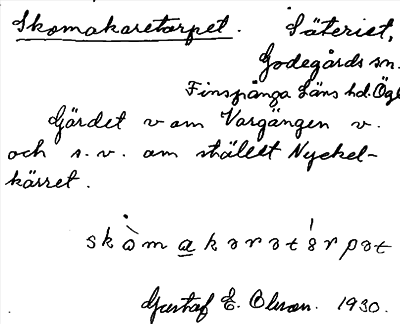 Skomakaretorpet. Säteriet,
Godegårds sn.
Finspånga läns hd. Ögl
Gärdet v om Vargängen v.
och s.v. om stället Nyckel-
kärret.
skòmakarətórpət
Gustaf E. Olsson. 1930.